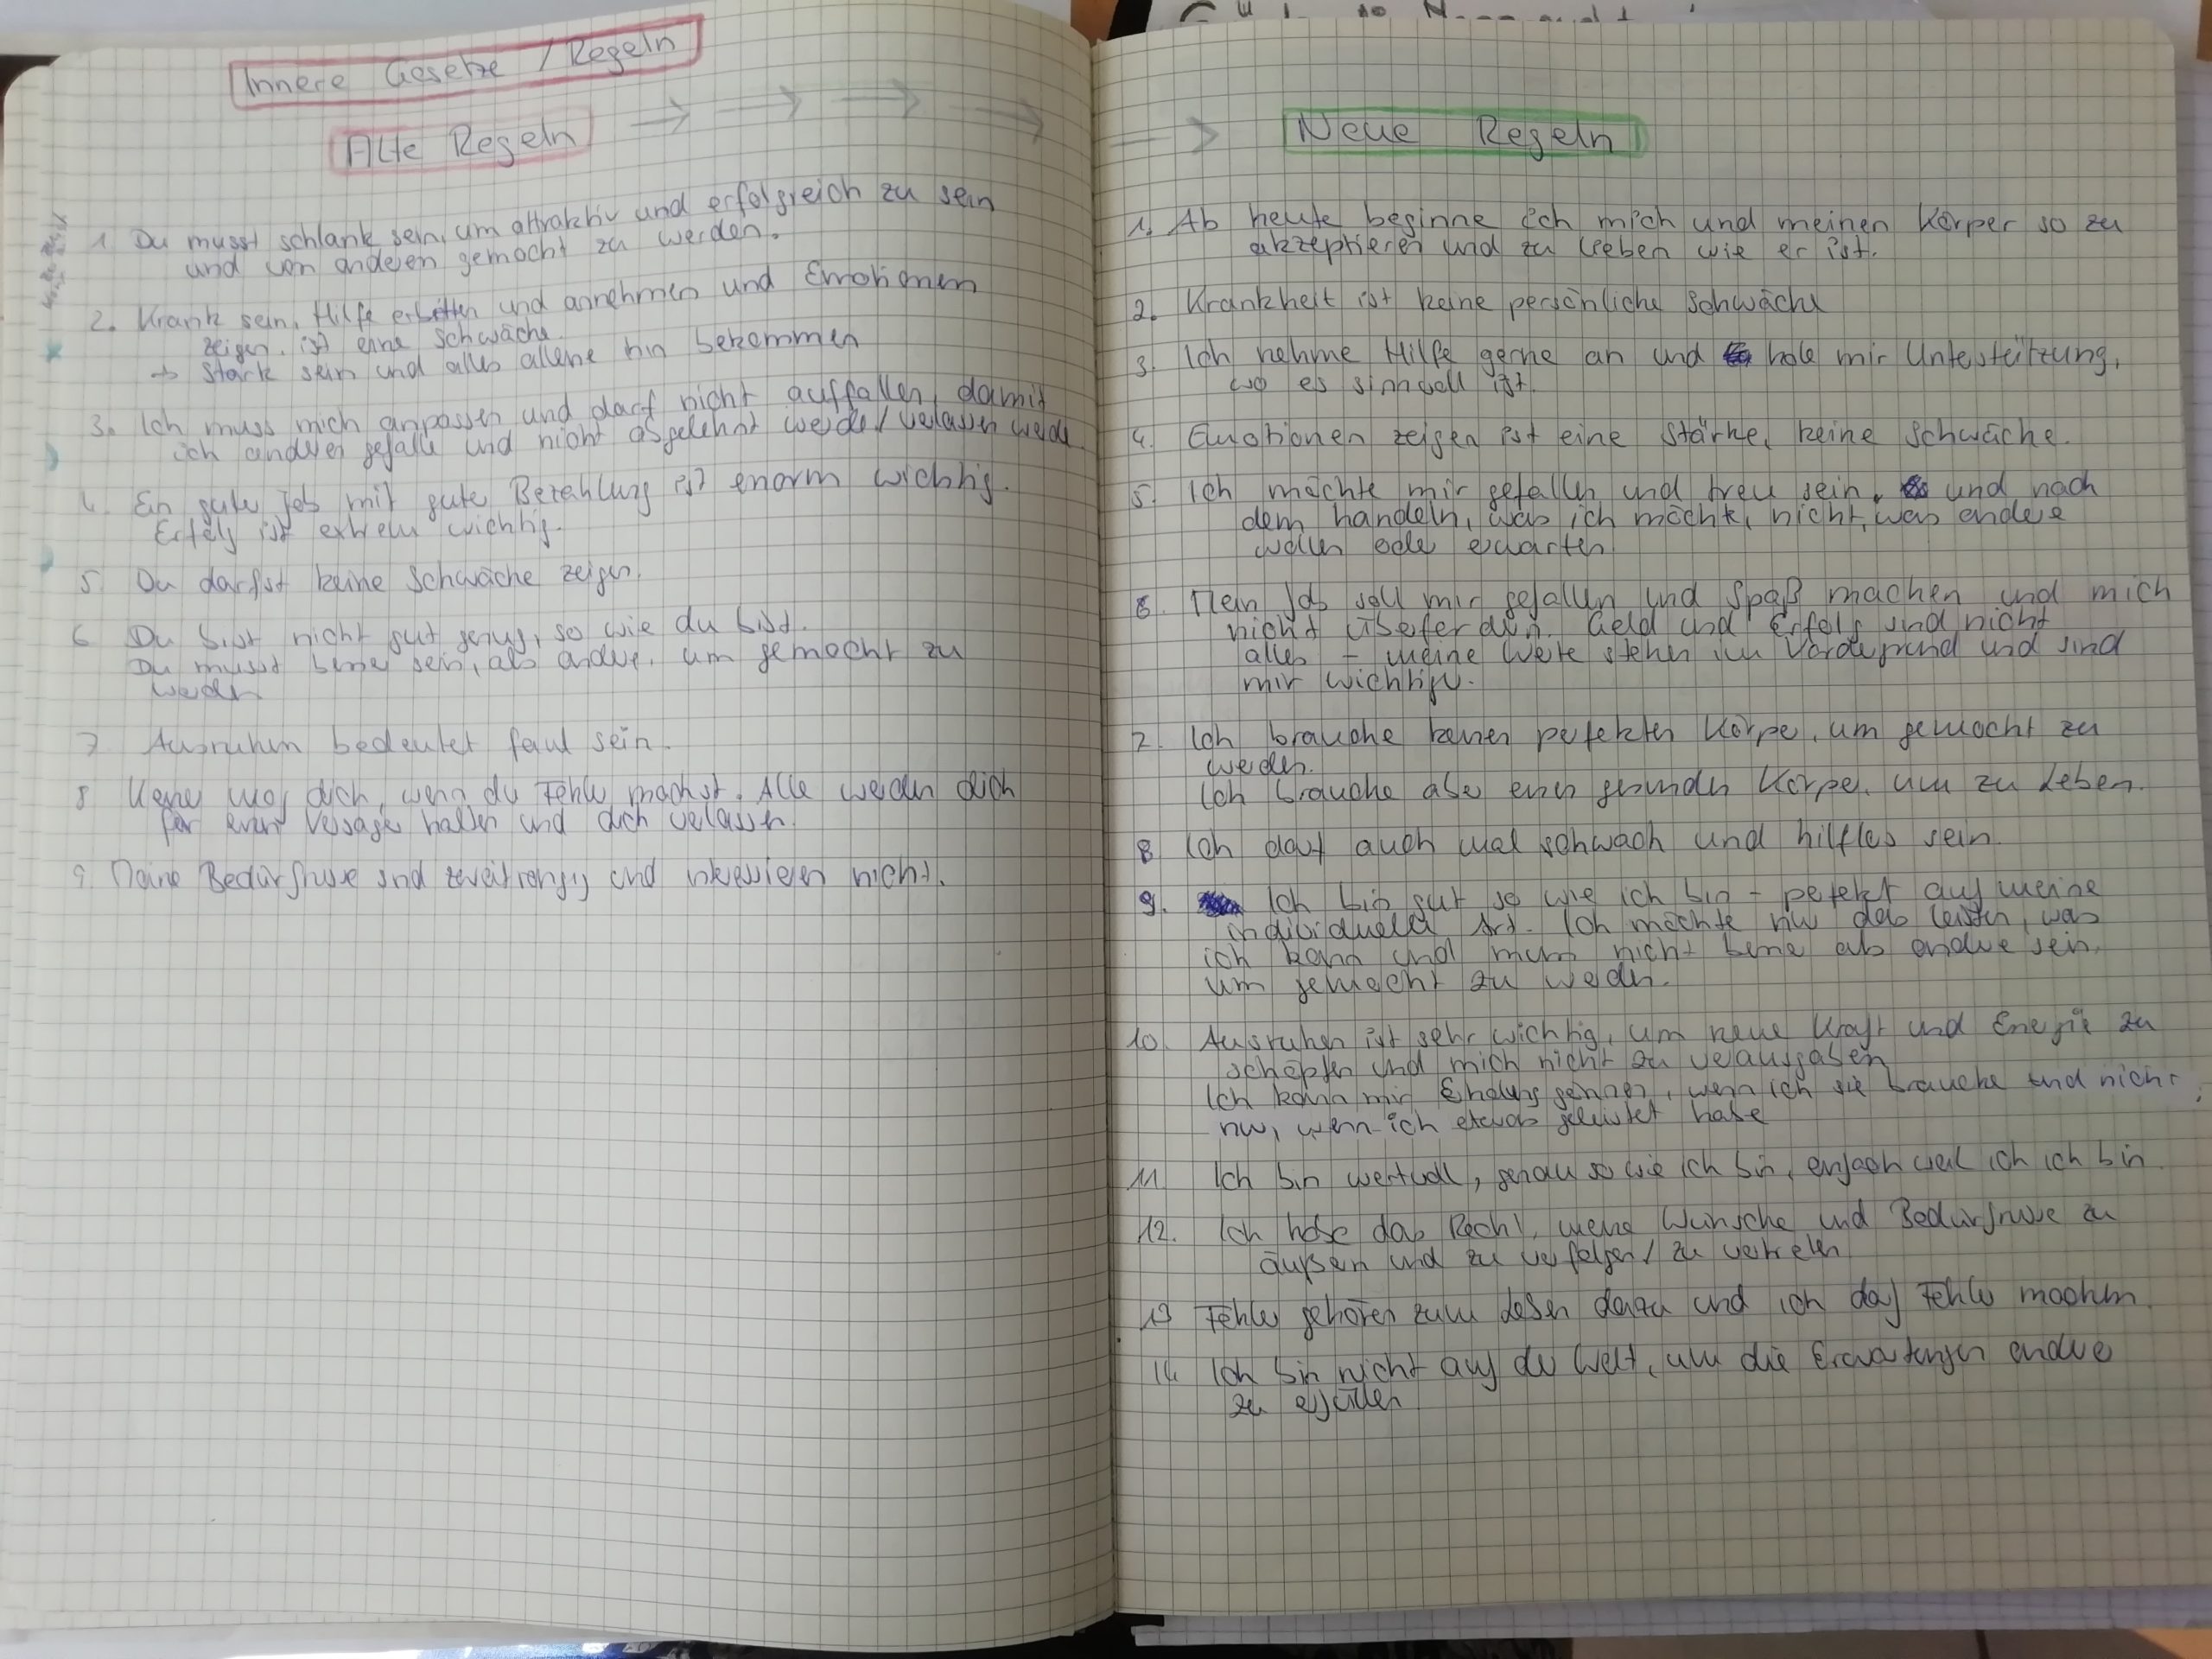 Innere Gesetze / Regeln
Alte Regeln
1. Du musst schlank sein, um attraktiv und erfolgreich zu sein
und von anderen gemocht zu werden.
2. Krank sein, Hilfe erbitten und annehmen und Emotionen
zeigen, ist eine Schwäche.
→ Stark sein und alles alleine hin bekommen
3. Ich muss mich anpassen und darf nicht auffallen, damit
ich anderen gefalle und nicht abgelehnt werde / verlassen werde
4. Ein guter Job mit guter Bezahlung ist enorm wichtig.
Erfolg ist extrem wichtig.
5. Du darfst keine Schwäche zeigen.
6 Du bist nicht gut genug, so wie du bist.
Du musst besser sein, als andere, um gemocht zu
werden
7. Ausruhen bedeutet faul sein.
8 Keiner mag dich, wenn du Fehler machst. Alle werden dich
für einen Versager halten und dich verlassen.
9 Deine Bedürfnisse sind zweitrangig und interessieren nicht.
Neue Regeln
1. Ab heute beginne ich mich und meinen Körper so zu
akzeptieren und zu lieben wie er ist.
2. Krankheit ist keine persönliche Schwäche
3. Ich nehme Hilfe gerne an und hole mir Unterstützung,
wo es sinnvoll ist.
4. Emotionen zeigen ist eine Stärke, keine Schwäche.
5. Ich möchte mir gefallen und treu sein, und nach
dem handeln, was ich möchte, nicht, was andere
wollen oder erwarten
6. Mein Job soll mir gefallen und Spaß machen und mich
nicht überfordern. Geld und Erfolg sind nicht
alles - meine Werte stehen im Vordergrund und sind
mir wichtiger.
7. Ich brauche keinen perfekten Körper, um gemocht zu
werden.
Ich brauche aber einen gesunden Körper, um zu leben.
8 Ich darf auch mal schwach und hilflos sein.
9. Ich bin gut so wie ich bin - perfekt auf meine
individuelle Art. Ich möchte nur das leisten, was
ich kann und muss nicht besser als andere sein,
um gemocht zu werden.
10. Ausruhen ist sehr wichtig, um neue Kraft und Energie zu
schöpfen und mich nicht zu verausgaben
Ich kann mir Erholung gönnen, wenn ich sie brauche und nicht
nur, wenn ich etwas geleistet habe
11. Ich bin wertvoll, genau so wie ich bin, einfach weil ich ich bin.
12. Ich habe das Recht, meine Wünsche und Bedürfnisse zu
äußern und zu verfolgen / zu vertreten
13 Fehler gehören zum Leben dazu und ich darf Fehler machen.
14. Ich bin nicht auf der Welt, um die Erwartungen anderer
zu erfüllen